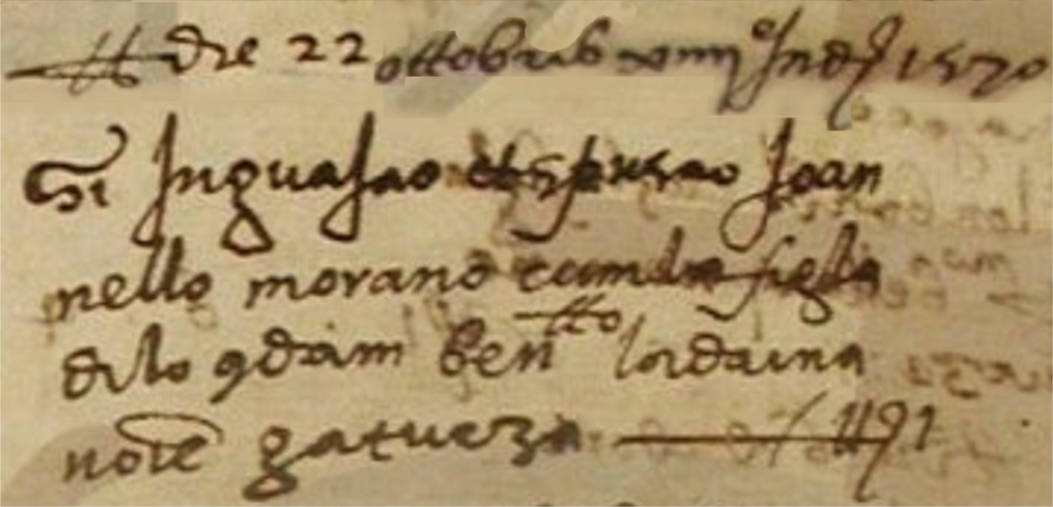 die 22 ottobris xiiii Ind 1570
Si Inguajao et spusao Joan
nello morano cum la figla
di lo qdam ben^tto lordaina
noīe gatueza